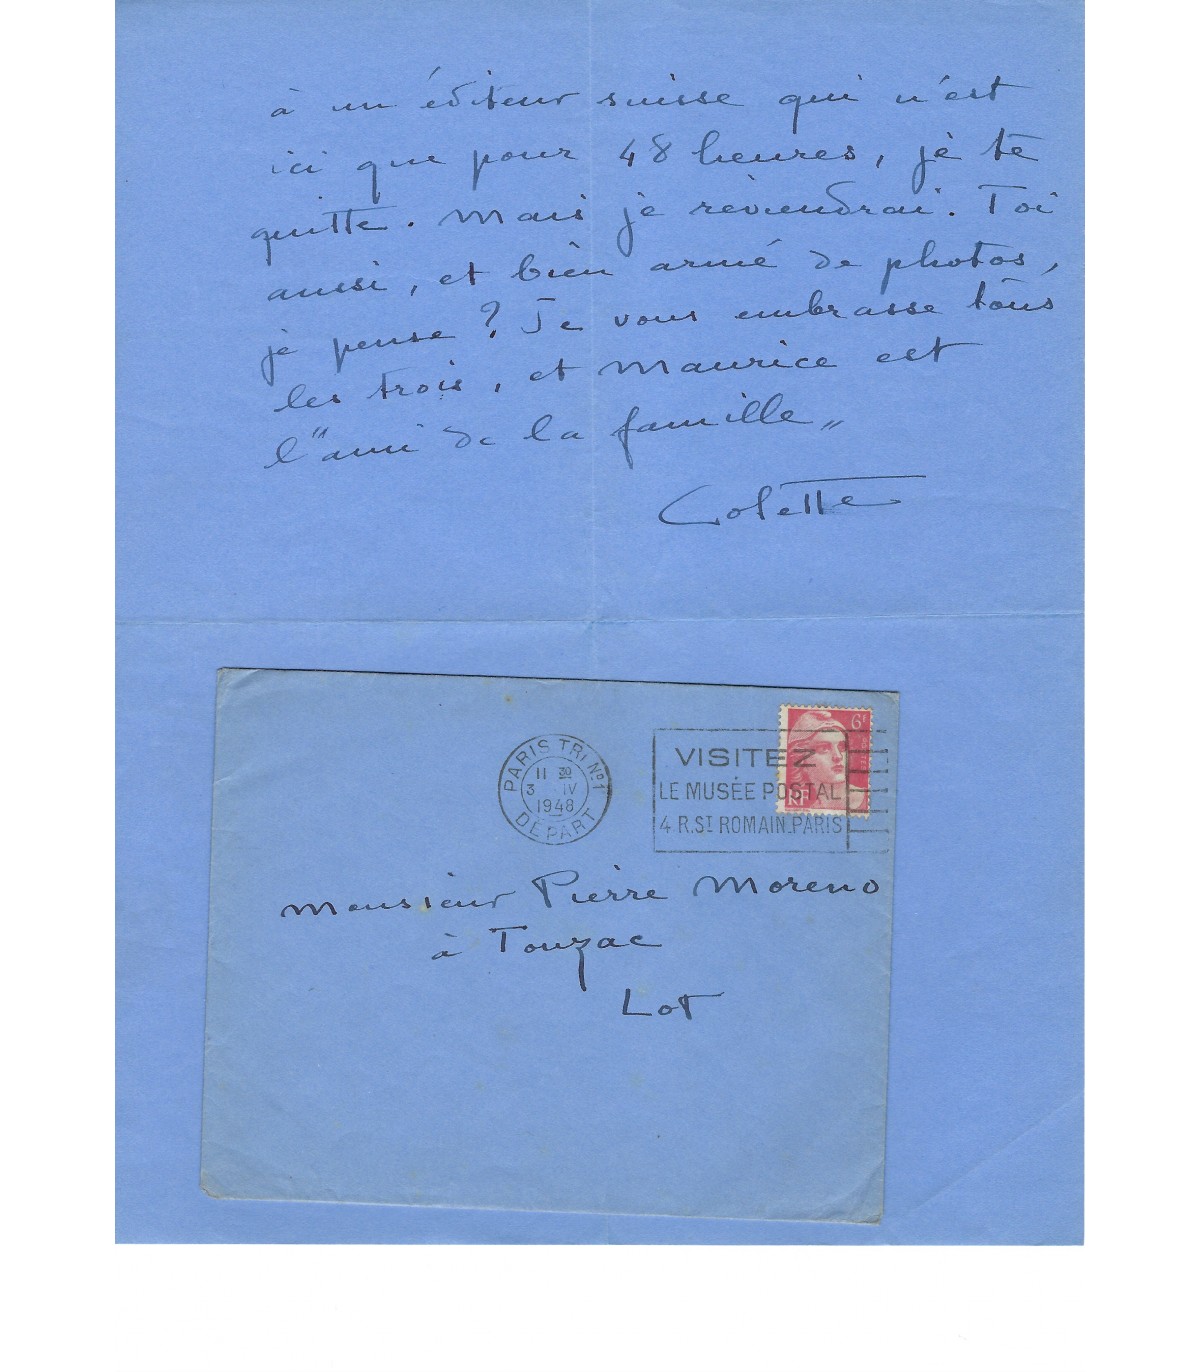 à un éditeur suisse qui n'est
ici que pour 48 heures, je te
quitte. Mais je reviendrai. Toi
aussi, et bien armé de photos,
je pense ? Je vous embrasse tous
les trois, et Maurice est
l'"ami de la famille„
Colette
6F
RF
PARIS TRI Nº1
11 30
3 IV
1948
DÉPART
VISITEZ
LE MUSÉE POSTAL
4 R.ST ROMAIN-PARIS
Monsieur Pierre Moreno
à Touzac
Lot